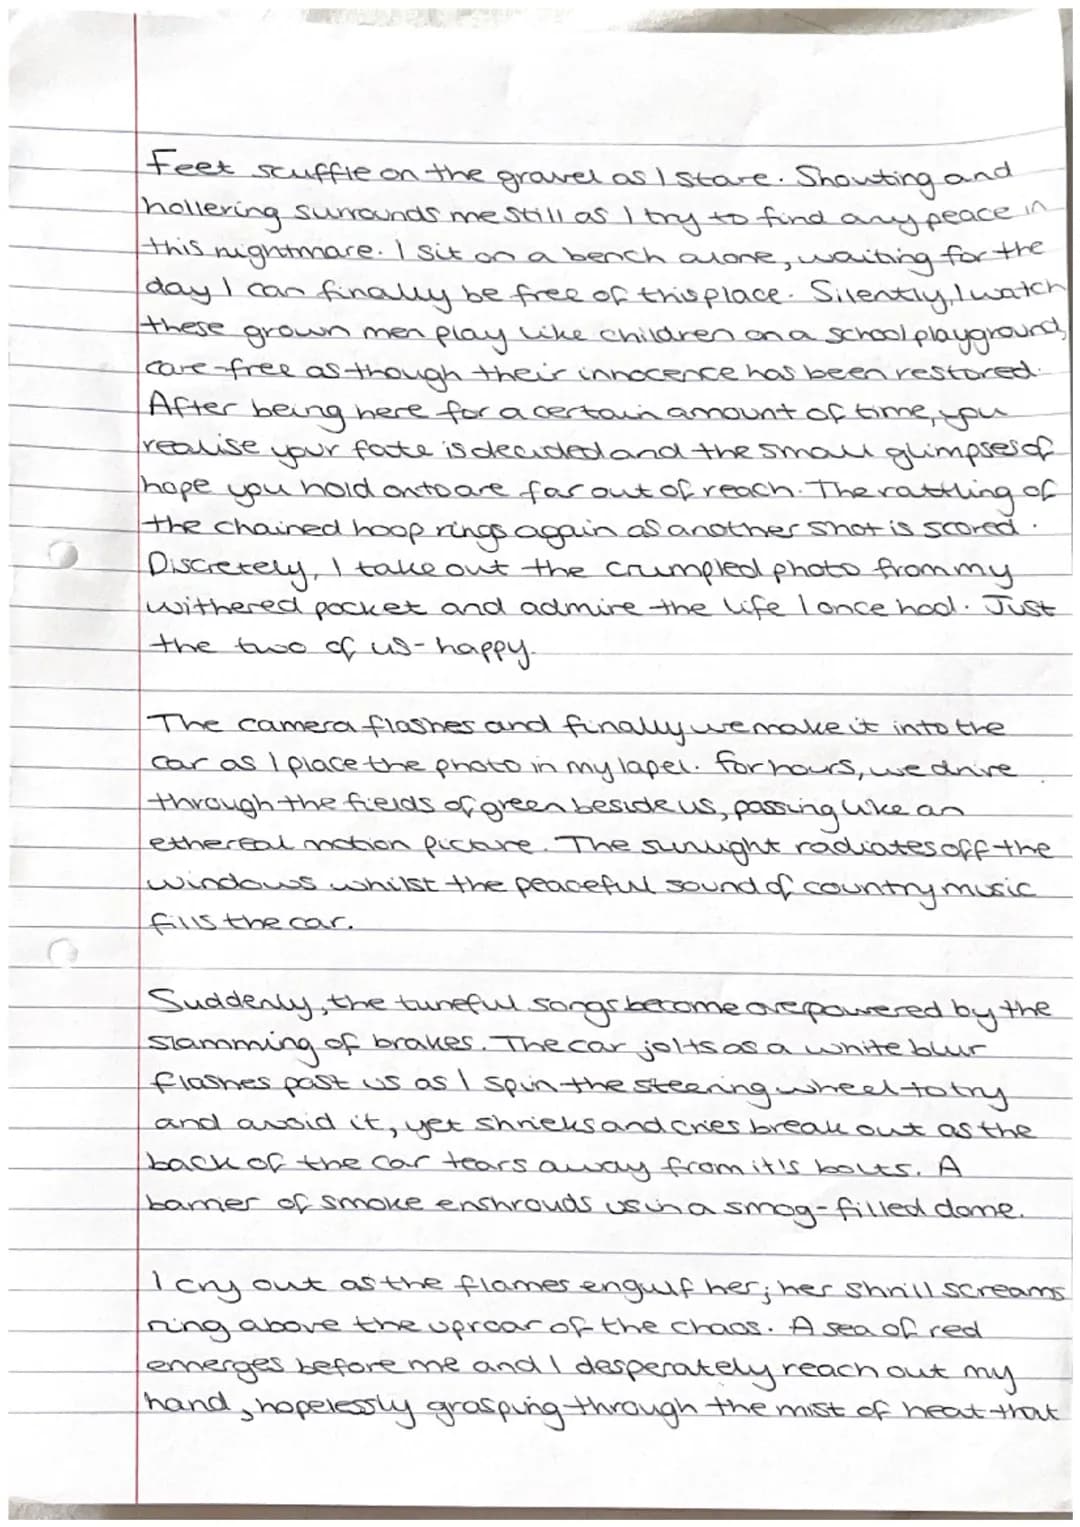 Feet scuffle on the gravel as I stare. Shouting and
hollering surrounds me still as I try to find any peace in
this nightmare. I sit on a bench alone, waiting for the
day I can finally be free of this place. Silently, I watch
these grown men play like children on a school playground,
care-free as though their innocence has been restored.
After being here for a certain amount of time, you
realise your fate is decided and the small glimpses of
hope you hold onto are far out of reach. The rattling of
the chained hoop rings again as another shot is scored.
Discretely, I take out the crumpled photo from my
withered pocket and admire the life I once had. Just
the two of us - happy.
The camera flashes and finally we make it into the
car as I place the photo in my lapel. For hours, we drive
through the fields of green beside us, passing like an
ethereal motion picture. The sunlight radiates off the
windows whilst the peaceful sound of country music
fills the car.
Suddenly, the tuneful songs become overpowered by the
slamming of brakes. The car jolts as a white blur
flashes past us as I spin the steering wheel to try
and avoid it, yet shrieks and cries break out as the
back of the car tears away from it's bolts. A
barrier of smoke enshrouds us in a smog-filled dome.
I cry out as the flames engulf her; her shrill screams
ring above the uproar of the chaos. A sea of red
emerges before me and I desperately reach out my
hand, hopelessly grasping through the mist of heat that